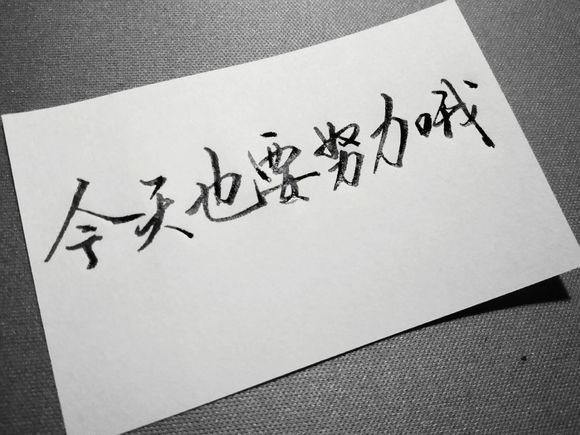 今天也要努力哦